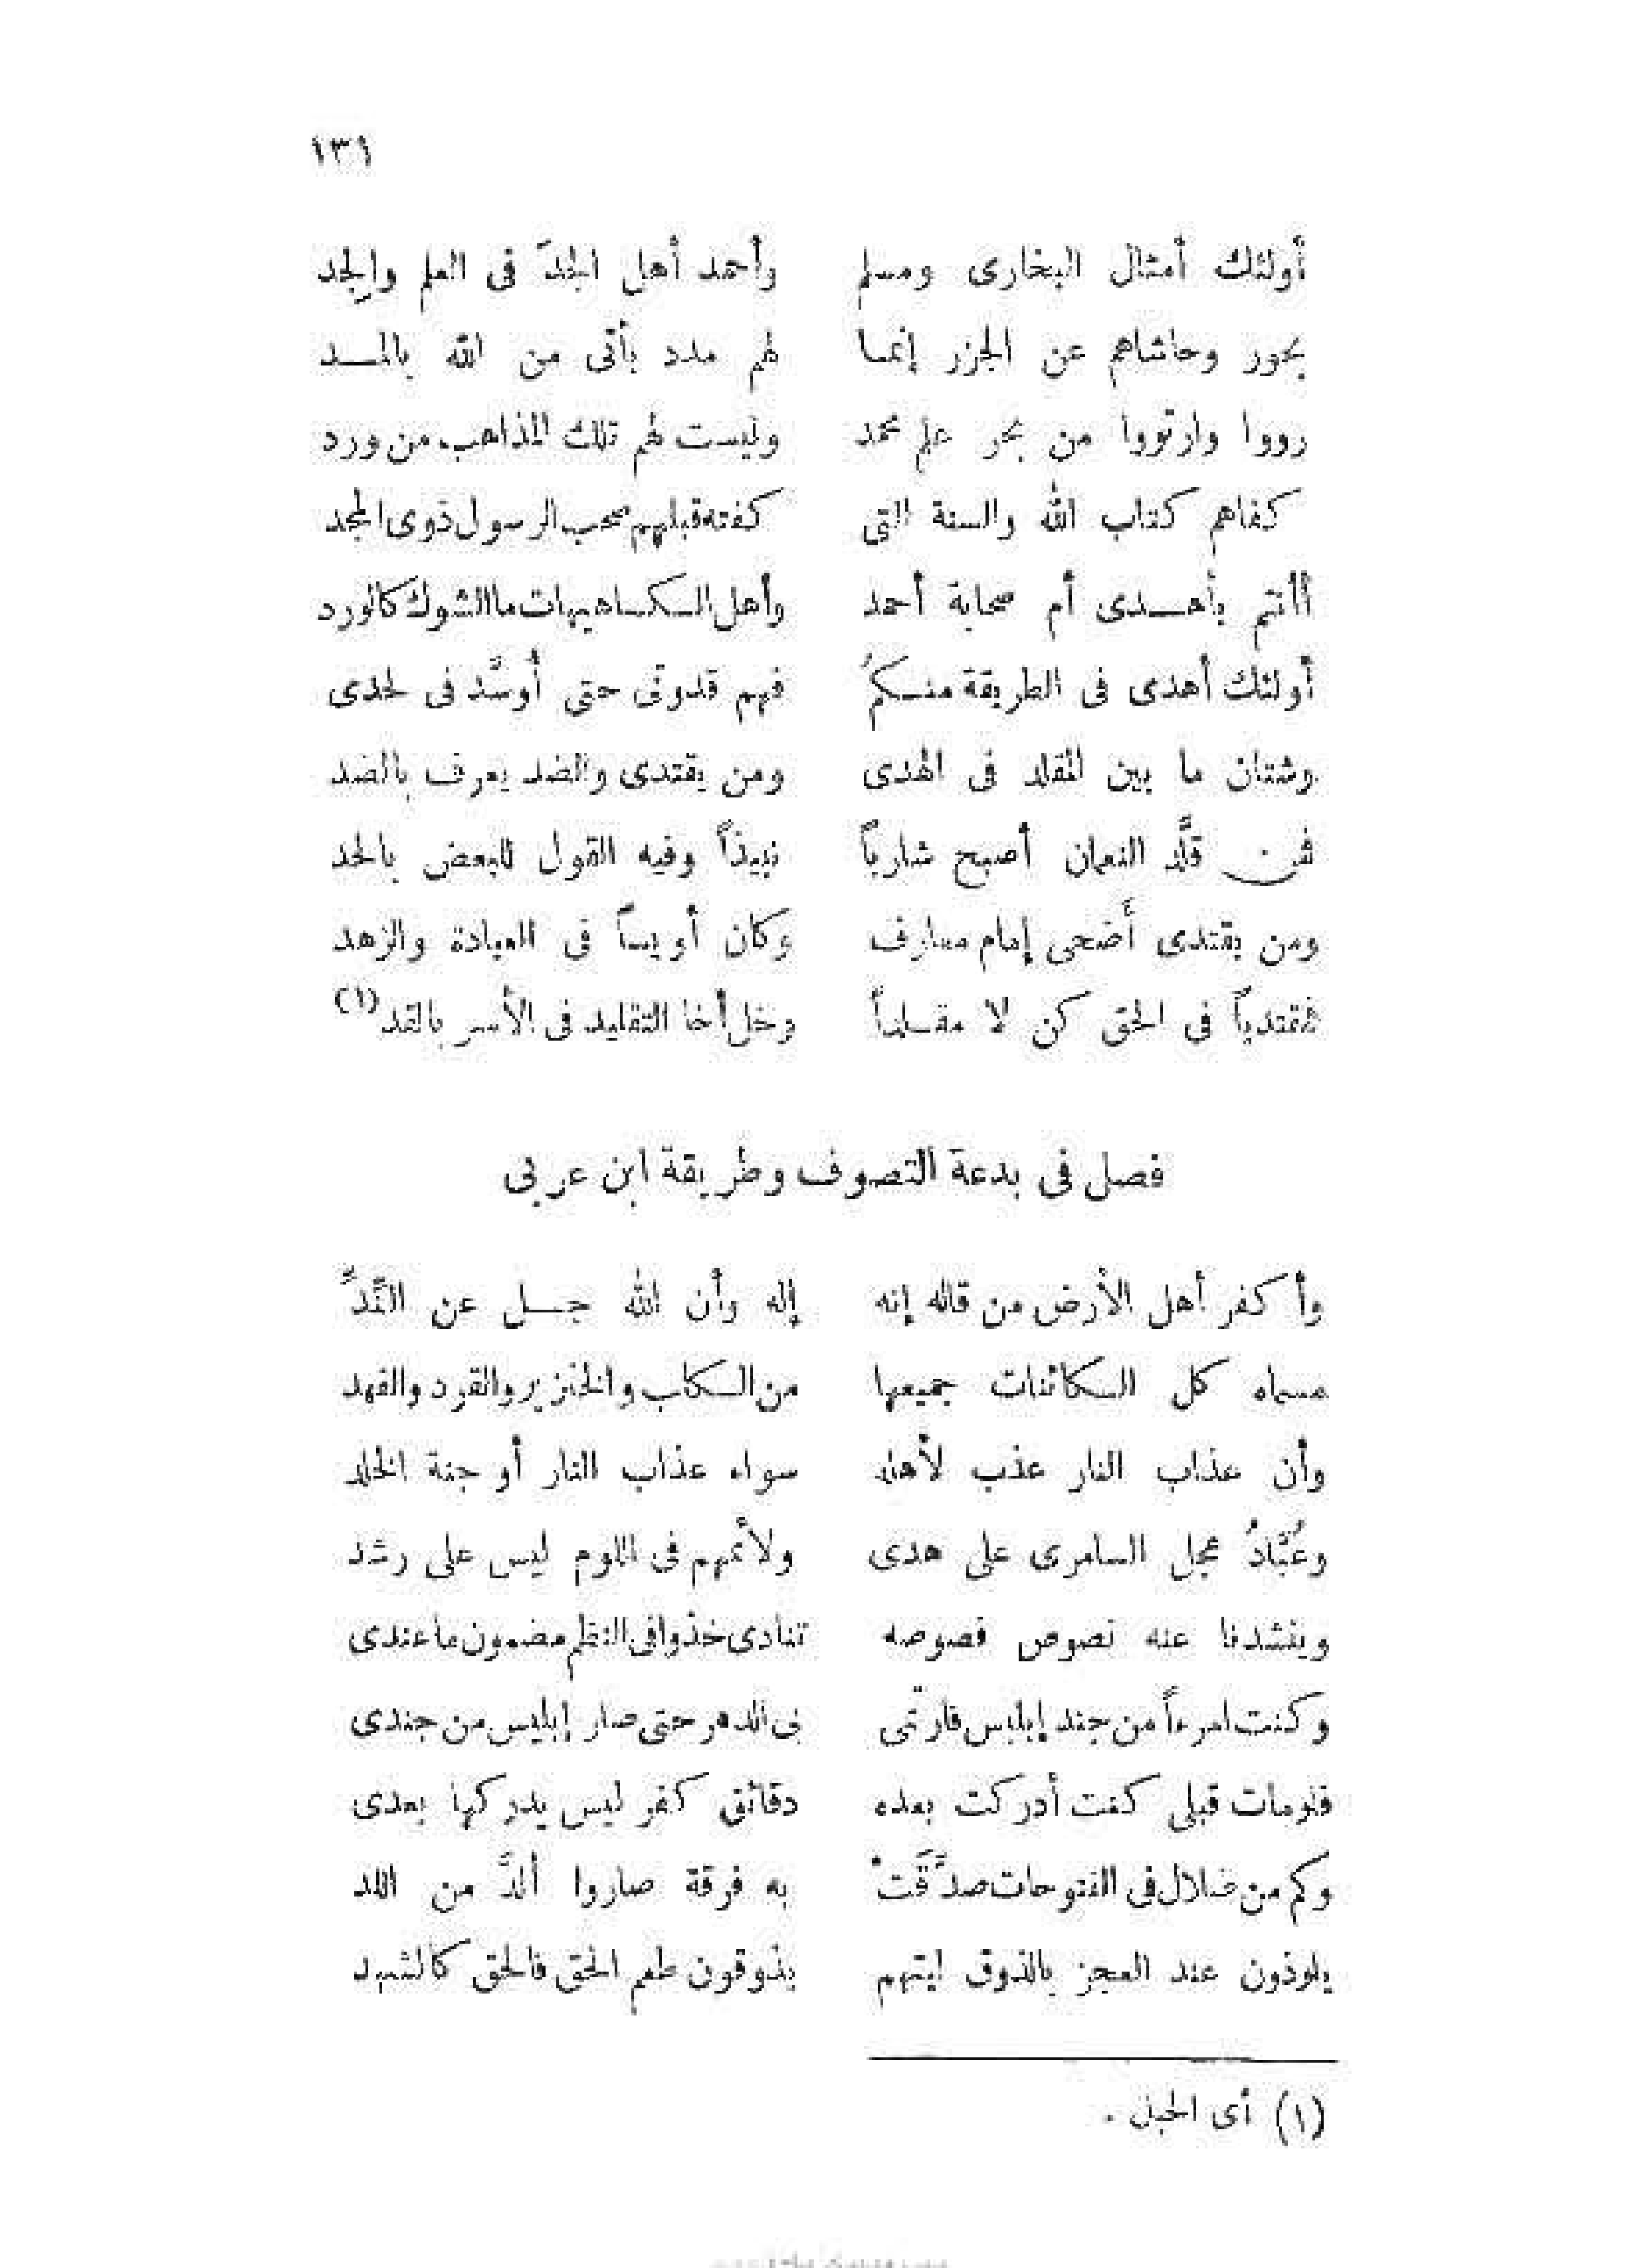 ١٣١
أولئك أمثال البخارى ومسلم وأحمد أهل الجدّ فى العلم والجِد
بحور وحاشاهم عن الجزر إنما لهم مدد يأتى من الله بالمد
رووا وارتووا من بحر علم محمد وليست لهم تلك المذاهب من ورد
كفاهم كتاب الله والسنة التى كفت قبلهم صحب الرسول ذوى المجد
أأنتم بأهدى أم صحابة أحمد وأهل الكسا هيهات ما الشوك كالورد
أولئك أهدى فى الطريقة منكمُ فهم قدوتى حتى أُوسَّد فى لحدى
وشتان ما بين المقلد فى الهدى ومن يقتدى والضد يعرف بالضد
فمن قلَّد النعمان أصبح شارباً نبيذاً وفيه القول للبعض بالحد
ومن يقتدى أَضحى إمام معارف وكان أويساً فى العبادة والزهد
فمقتدياً فى الحق كن لا مقلداً وخل أخا التقليد فى الأسر بالقد (١)
فصل فى بدعة التصوف وطريقة ابن عربى
وأكفر أهل الأرض من قال إنه إله وأن الله جل عن النِّدِّ
مسماه كل الكائنات جميعها من الكلب والخنزير والقرد والفهد
وأن عذاب النار عذب لأهله سواء عذاب النار أو جنة الخلد
وعُبَّادُ عجل السامرى على هدى ولأئمهم فى اللوم ليس على رشد
وينشدنا عنه نصوص فصوصه تنادى خذوا فى النظم مضمون ما عندى
وكنت امرءاً من جند إبليس فارتمى بى الدهر حتى صار إبليس من جندى
فلو مات قبلى كنت أدركت بعده دقائق كفر ليس يدركها بعدى
وكم من ضلال فى الفتوحات صدَّقَتْ به فرقة صاروا ألدَّ من اللد
يلوذون عند العجز بالذوق ليتهم يذوقون طعم الحق فالحق كالشهد
(١) أى الحبل .